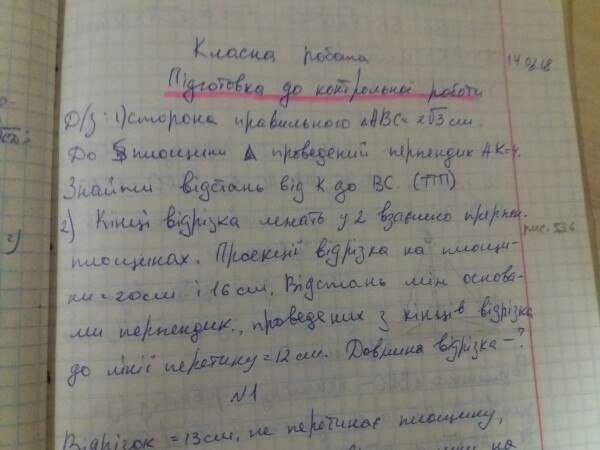 Класна робота
14.03.18
Підготовка до контрольної роботи
Д/з: 1) Сторона правильного ΔABC = 2√3 см.
До площини Δ проведений перпендик AK=4.
Знайти відстань від K до BC. (ТТП)
2) Кінці відрізка лежать у 2 взаємно перпен.
площинах. Проекції відрізка на площи-
ни = 20 см і 16 см. Відстань між основа-
ми перпендик., проведених з кінців відрізка
до лінії перетину = 12 см. Довжина відрізка - ?
рис. 536
N1
Відрізок = 13 см, не перетинає площину,
на
2)